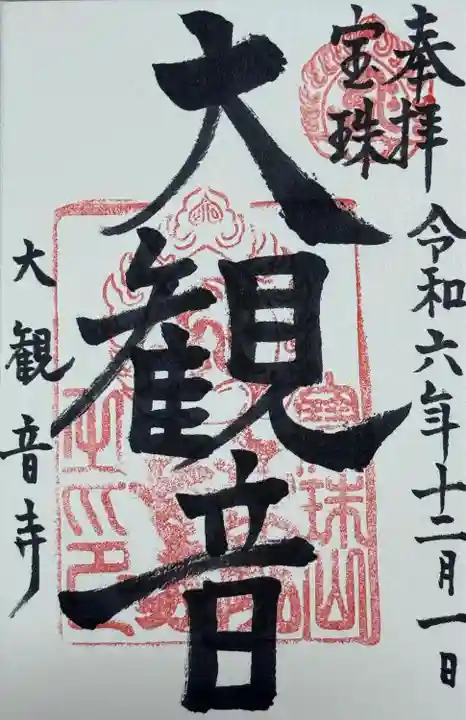 奉拝
令和六年十二月一日
宝珠
大観音
大観音寺